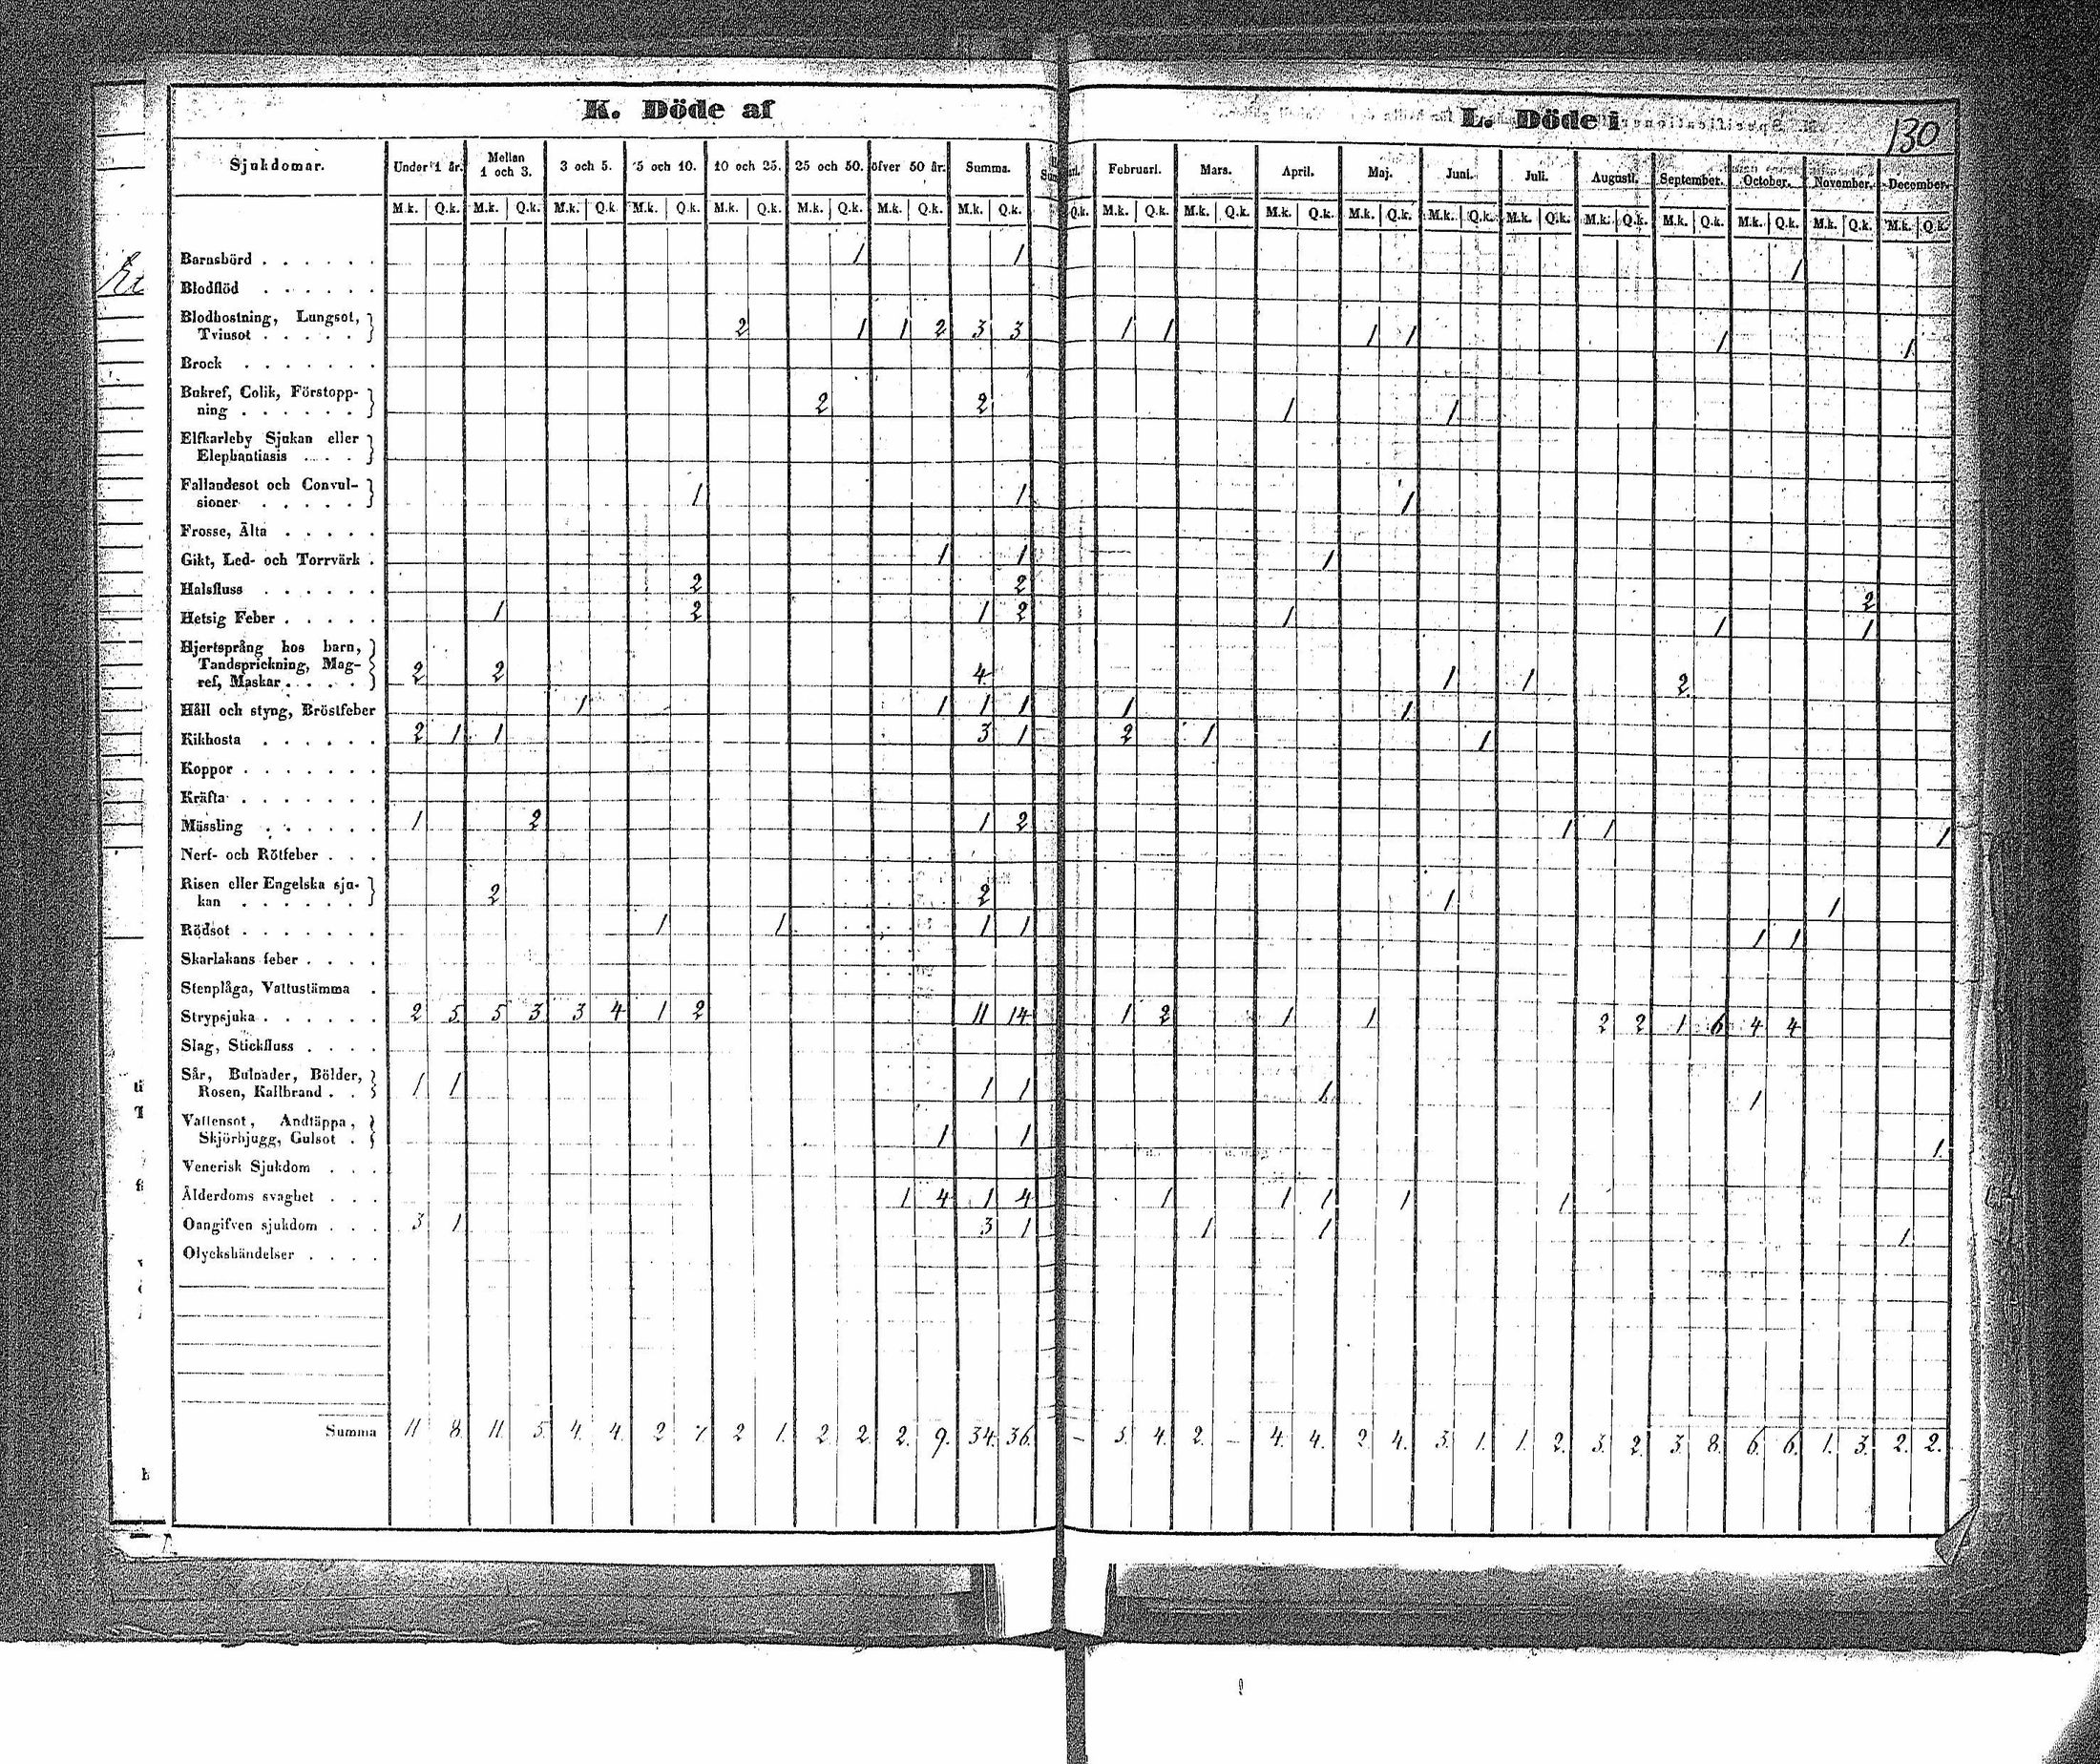 K. Döde af
L. Döde i
130
Sjukdomar. Under 1 år. Mellan 1 och 3. 3 och 5. 5 och 10. 10 och 25. 25 och 50. öfver 50 år. Summa. Februari. Mars. April. Maj. Juni. Juli. Augusti. September. October. November. December.
M.k. Q.k. M.k. Q.k. M.k. Q.k. M.k. Q.k. M.k. Q.k. M.k. Q.k. M.k. Q.k. M.k. Q.k. Q.k. M.k. Q.k. M.k. Q.k. M.k. Q.k. M.k. Q.k. M.k. Q.k. M.k. Q.k. M.k. Q.k. M.k. Q.k. M.k. Q.k. M.k. Q.k. M.k. Q.k.
Barnsbörd . . . . . . 1 1 1
Blodflöd . . . . . .
Blodhostning, Lungsot,
Tvinsot . . . . . 2 1 1 2 3 3 1 1 1 1 1 1
Brock . . . . . . .
Bukref, Colik, Förstopp-
ning . . . . . . 2 2 1 1
Elfkarleby Sjukan eller
Elephantiasis . . . .
Fallandesot och Convul-
sioner . . . . . 1 1 1
Frosse, Älta . . . . .
Gikt, Led- och Torrvärk . 1 1 1
Halsfluss . . . . . . 2 2 2
Hetsig Feber . . . . . 1 2 1 2 1 1 1
Hjertsprång hos barn,
Tandsprickning, Mag-
ref, Maskar . . . . 2 2 4 1 1 2
Håll och styng, Bröstfeber 1 1 1 1 1 1
Kikhosta . . . . . . 2 1 1 3 1 2 1 1
Koppor . . . . . . .
Kräfta . . . . . . .
Mässling . . . . . . 1 2 1 2 1 1 1
Nerf- och Rötfeber . . .
Risen eller Engelska sju-
kan . . . . . . 2 2 1 1
Rödsot . . . . . . . 1 1 1 1 1 1
Skarlakans feber . . . .
Stenplåga, Vattustämma .
Strypsjuka . . . . . . 2 5 5 3 3 4 1 2 11 14 1 2 1 1 2 2 1 6 4 4
Slag, Stickfluss . . . .
Sår, Bulnader, Bölder,
Rosen, Kallbrand . . 1 1 1 1 1 1
Vattensot, Andtäppa,
Skjörbjugg, Gulsot . 1 1 1
Venerisk Sjukdom . . .
Ålderdoms svaghet . . . 1 4 1 4 1 1 1 1 1
Oangifven sjukdom . . . 3 1 3 1 1 1 1
Olyckshändelser . . . .
Summa 11 8 11 5 4 4 2 7 2 1 2 2 2 9 34 36 – 5 4 2 – 4 4 2 4 3 1 1 2 3 2 3 8 6 6 1 3 2 2